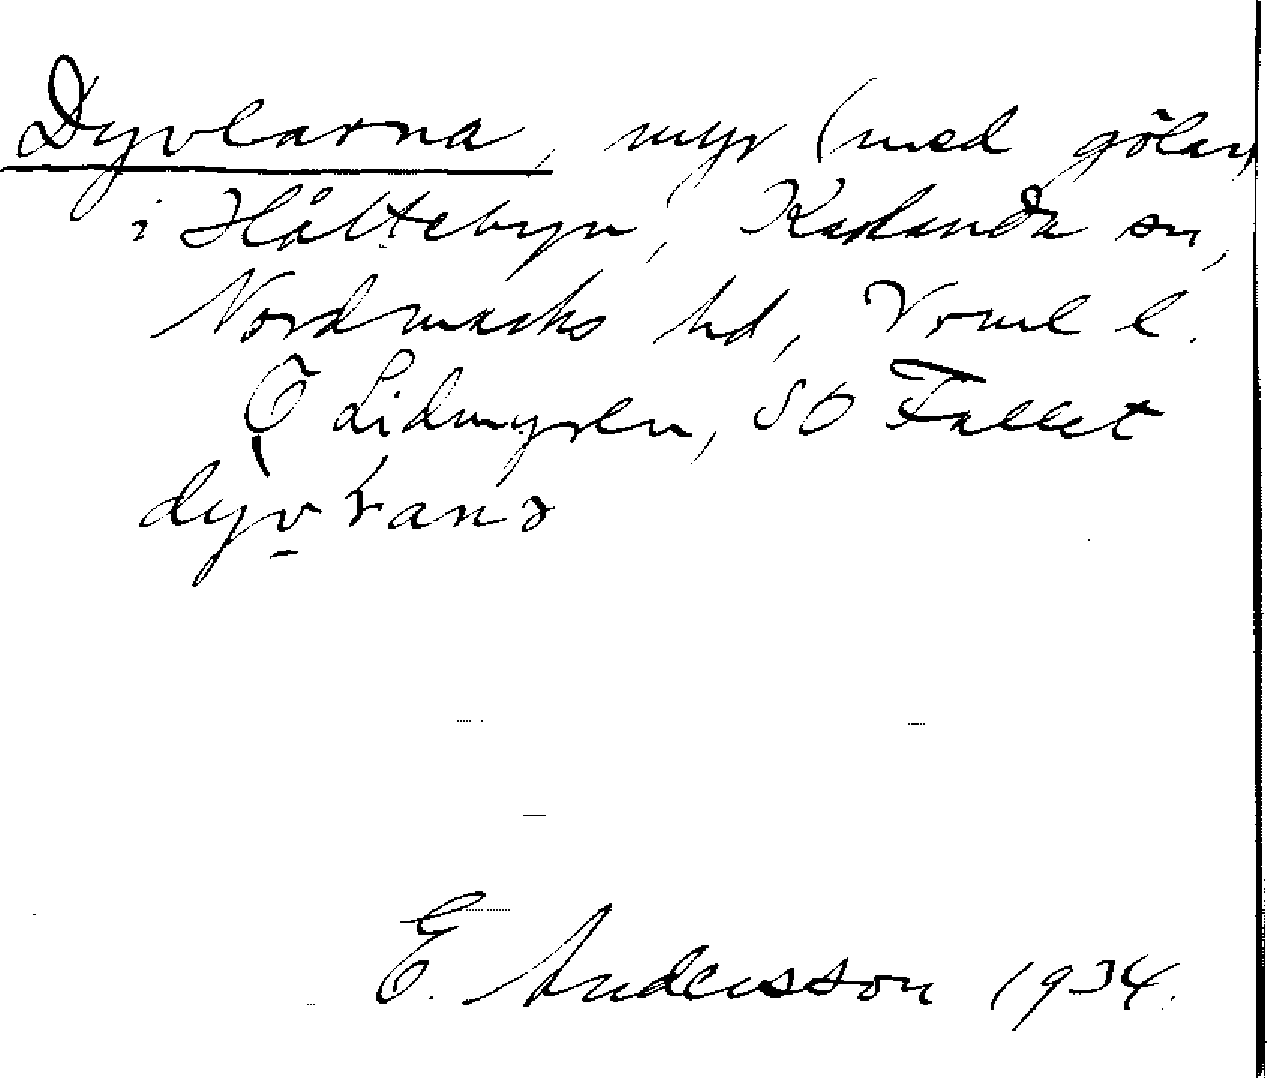 Dyvlarna, myr (med gölar)
i Håltebyn, Karlanda sn,
Nordmarks hd, Vrml l.
Ö Lidmyren, SO Fallet
dyv
E. Andersson 1934.